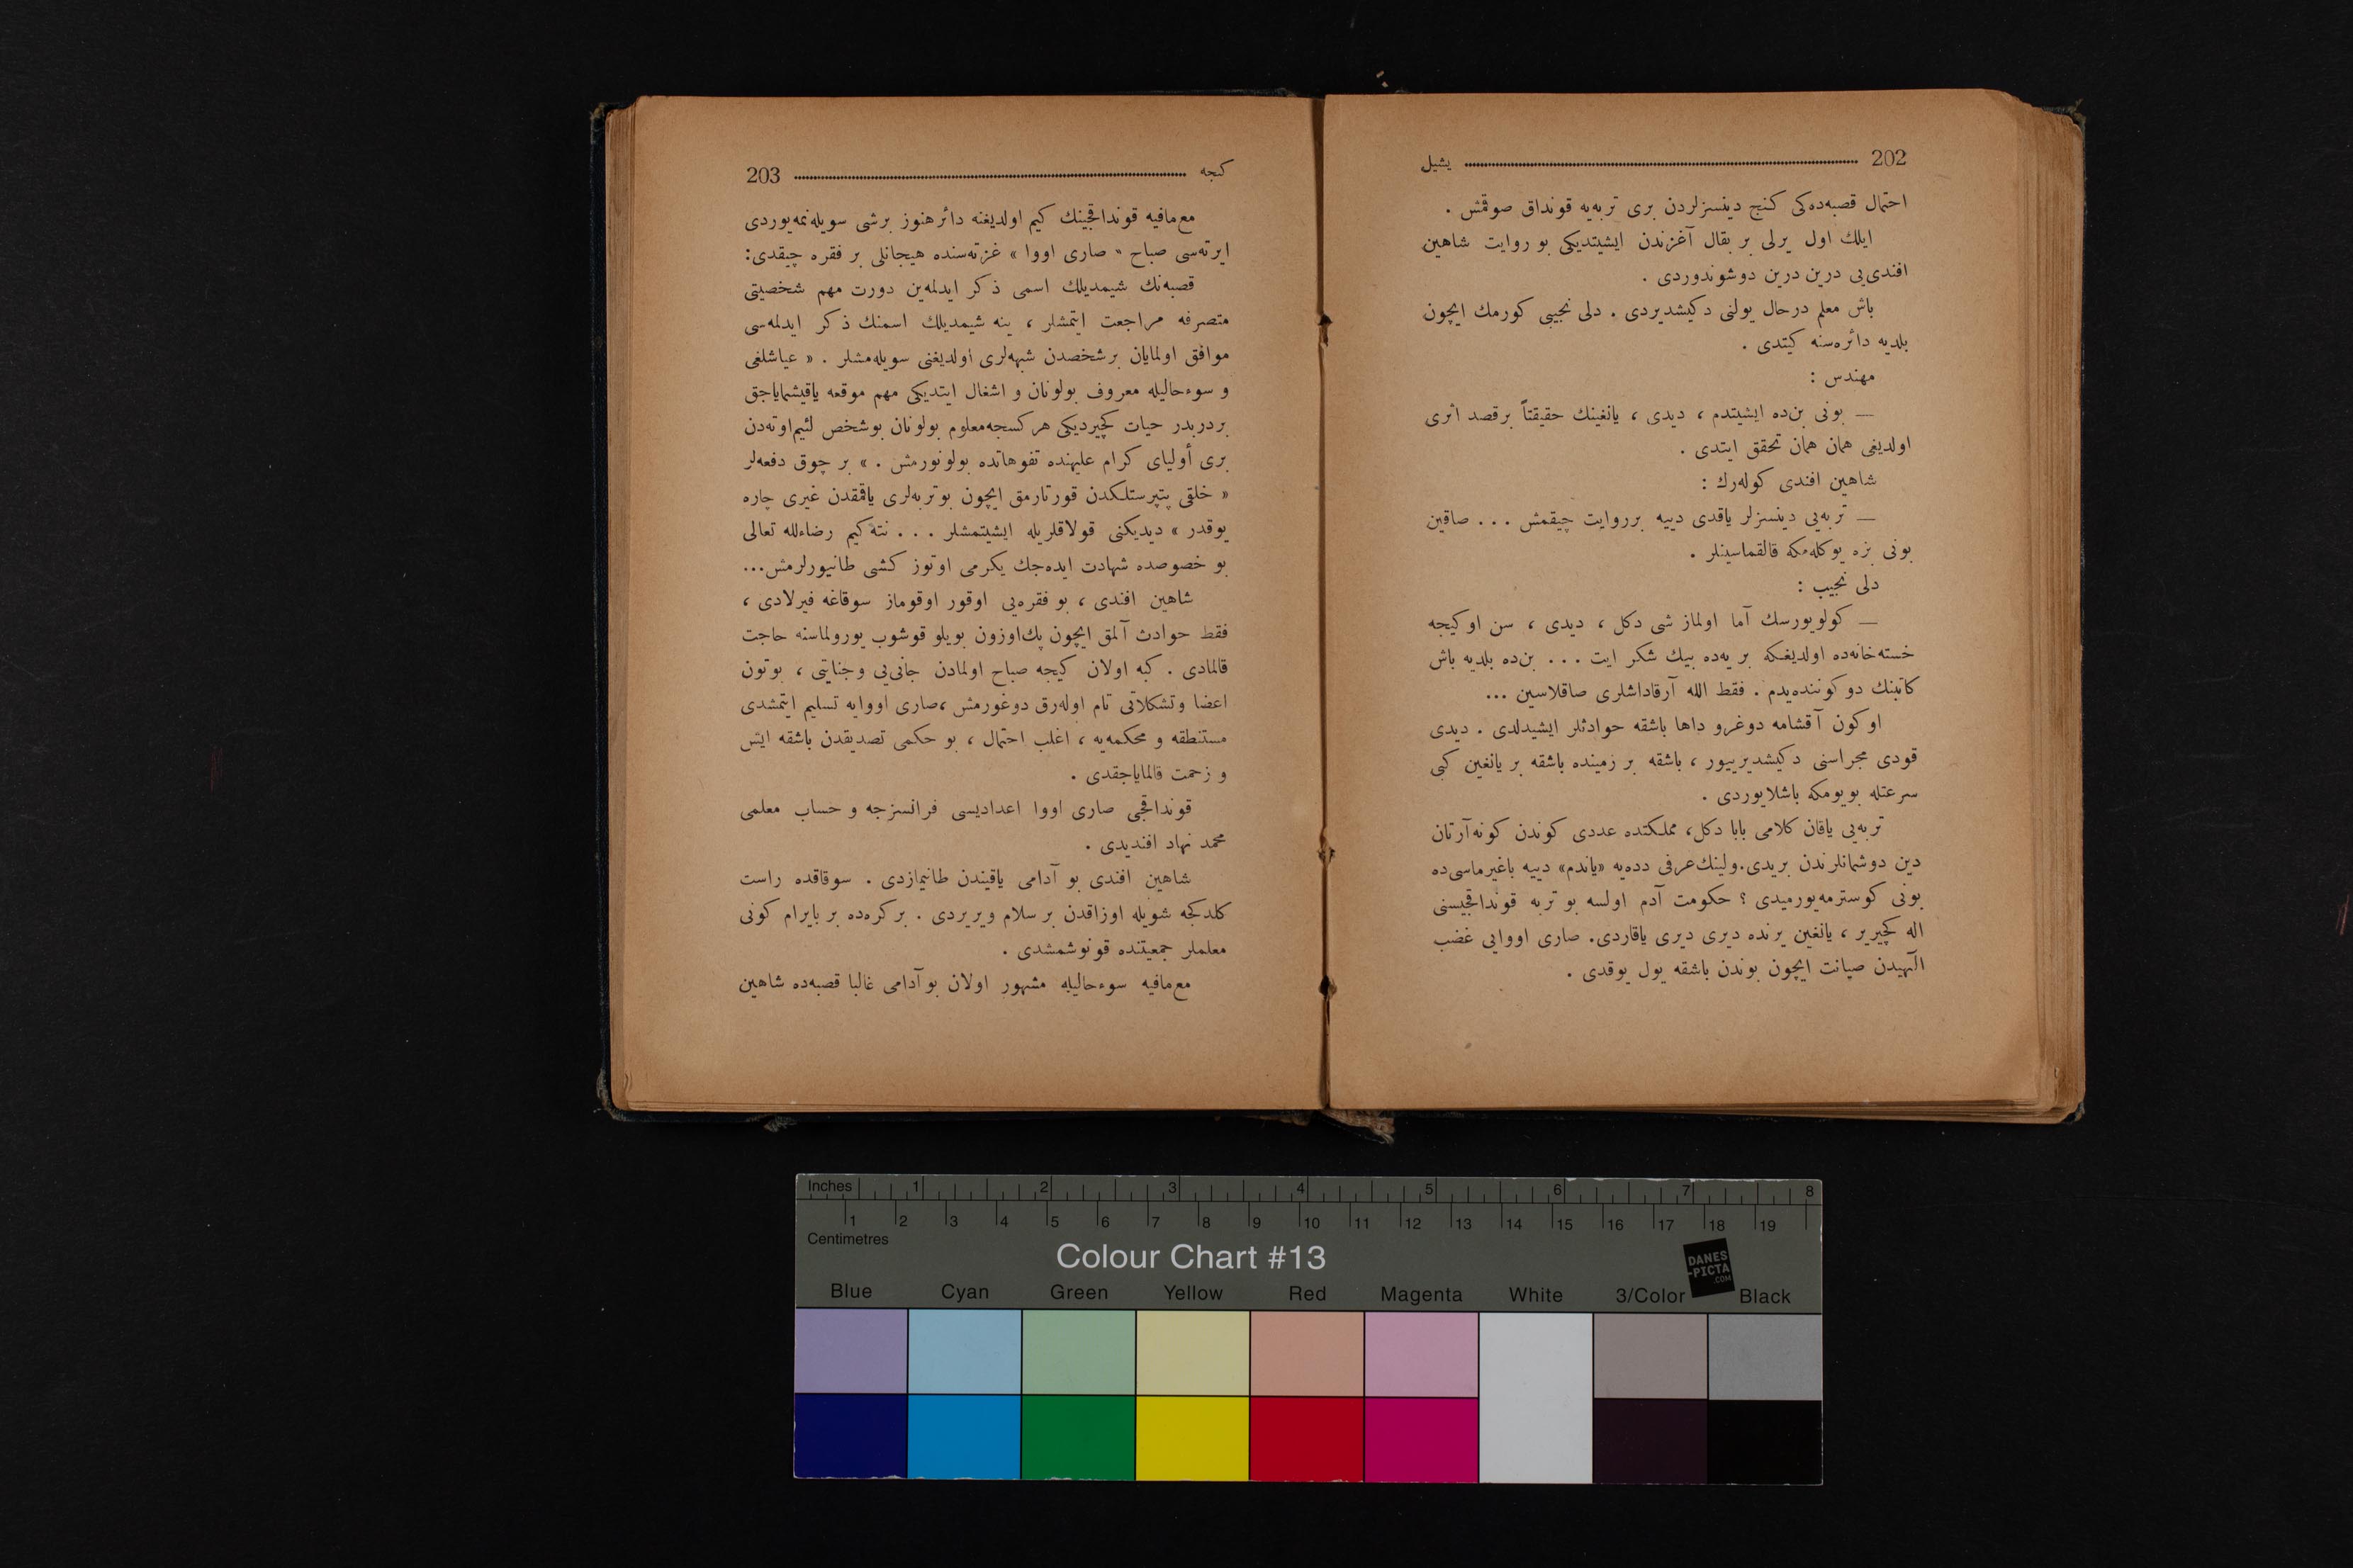 202 یشیل
احتمال قصبه‌ده‌كی كنج دینسزلردن بری تربه‌یه قونداق صوقمش .
ایلك اول یرلی بر بقال آغزندن ایشیتدیكی بو روایت شاهین
افندی‌یی درین درین دوشوندوردی .
باش معلم درحال یولنی دكیشدیردی . دلی نجیبی كورمك ایچون
بلدیه دائره‌سنه كیتدی .
مهندس :
— بونی بن‌ده ایشیتدم ، دیدی ، یانغینك حقیقتاً برقصد اثری
اولدیغی همان همان تحقق ایتدی .
شاهین افندی كوله‌رك :
— تربه‌یی دینسزلر یاقدی دییه برروایت چیقمش ... صاقین
بونی بزه یوكله‌مكه قالقماسینلر .
دلی نجیب :
— كولویورسك آما اولماز شی دكل ، دیدی ، سن اوكیجه
خسته‌خانه‌ده اولدیغكه بر یه‌ده بیك شكر ایت ... بن‌ده بلدیه باش
كاتبنك دوكوننده‌یدم . فقط الله آرقاداشلری صاقلاسین ...
اوكون آقشامه دوغرو داها باشقه حوادثلر ایشیدلدی . دیدی
قودی مجراسنی دكیشدیرییور ، باشقه بر زمینده باشقه بر یانغین كبی
سرعتله بویومكه باشلایوردی .
تربه‌یی یاقان كلامی بابا دكل، مملكتده عددی كوندن كونه آرتان
دین دوشمانلرندن بریدی. ولینك عرفی دده‌یه «یاندم» دییه باغیرماسی‌ده
بونی كوسترمه‌یورمیدی ؟ حكومت آدم اولسه بو تربه قونداقجیسنی
اله كچیریر ، یانغین یرنده دیری دیری یاقاردی. صاری اووایی غضب
الٓهیدن صیانت ایچون بوندن باشقه یول یوقدی .
كیجه 203
مع‌مافیه قونداقجینك كیم اولدیغنه دائر هنوز برشی سویله‌نمه‌یوردی
ایرته‌سی صباح « صاری اووا » غزته‌سنده هیجانلی بر فقره چیقدی:
قصبه‌نك شیمدیلك اسمی ذكر ایدلمه‌ین دورت مهم شخصیتی
متصرفه مراجعت ایتمشلر ، ینه شیمدیلك اسمنك ذكر ایدلمه‌سی
موافق اولمایان برشخصدن شبهه‌لری اولدیغنی سویله‌مشلر . « عیاشلغی
و سوءحالیله معروف بولونان و اشغال ایتدیكی مهم موقعه یاقیشمایاجق
بردربدر حیات كچیردیكی هركسجه‌معلوم بولونان بوشخص لئیم‌اوته‌دن
بری أولیای كرام علیهنده تفوهاتده بولونورمش . » بر چوق دفعه‌لر
« خلقی پتپرستلكدن قورتارمق ایچون بوتربه‌لری یاقمقدن غیری چاره
یوقدر » دیدیكنی قولاقلریله ایشیتمشلر ... نته‌كیم رضاءلله تعالی
بو خصوصده شهادت ایده‌جك یكرمی اوتوز كشی طانیورلرمش...
شاهین افندی ، بو فقره‌یی اوقور اوقوماز سوقاغه فیرلادی ،
فقط حوادث آلمق ایچون پك‌اوزون بویلو قوشوب یورولماسنه حاجت
قالمادی . كبه اولان كیجه صباح اولمادن جانی‌یی وجنایتی ، بوتون
اعضا وتشكلاتی تام اوله‌رق دوغورمش ،صاری اووایه تسلیم ایتمشدی
مستنطقه و محكمه‌یه ، اغلب احتمال ، بو حكمی تصدیقدن باشقه ایش
و زحمت قالمایاجقدی .
قونداقجی صاری اووا اعدادیسی فرانسزجه و حساب معلمی
محمد نهاد افندیدی .
شاهین افندی بو آدامی یاقیندن طانیمازدی . سوقاقده راست
كلدكجه شویله اوزاقدن بر سلام ویریردی . بركره‌ده بر بایرام كونی
معلملر جمعیتنده قونوشمشدی .
مع‌مافیه سوءحالیله مشهور اولان بوآدامی غالبا قصبه‌ده شاهین
Inches 1 2 3 4 5 6 7 8
1 2 3 4 5 6 7 8 9 10 11 12 13 14 15 16 17 18 19
Centimetres
Colour Chart #13
DANES
-PICTA
.COM
Blue Cyan Green Yellow Red Magenta White 3/Color Black